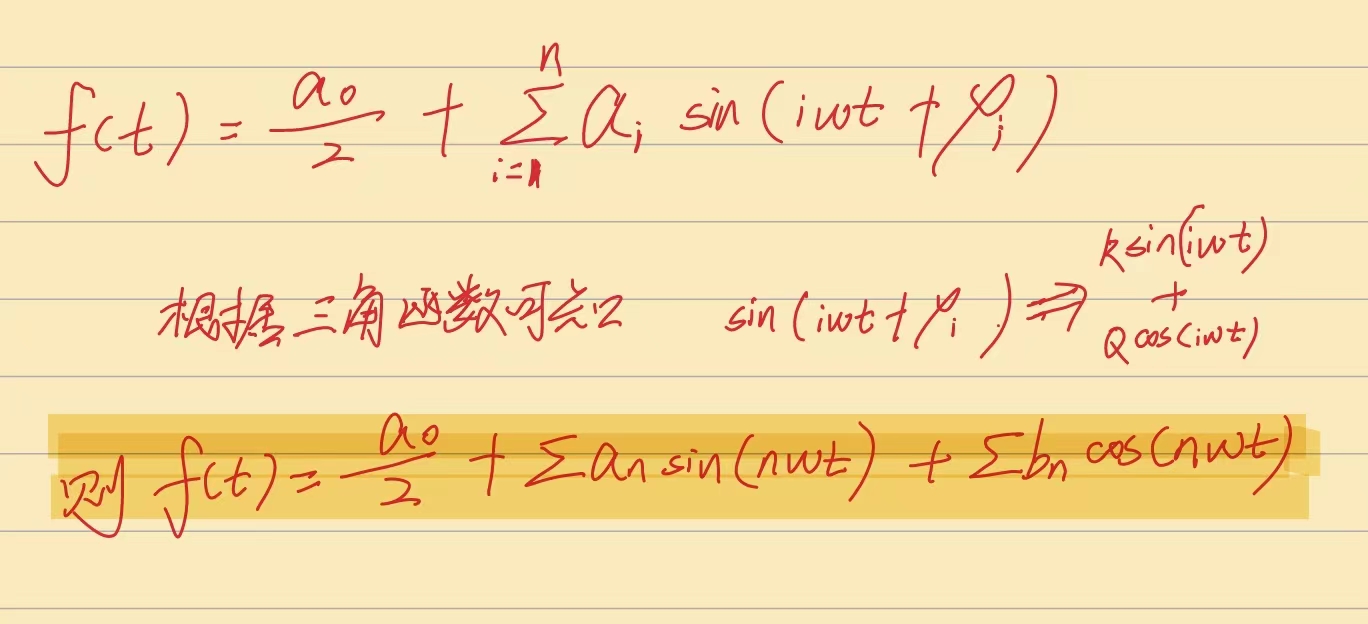 f(t) = a₀/2 + Σᵢ₌₁ⁿ aᵢ sin(iωt + φᵢ)
根据三角函数可知 sin(iωt + φᵢ) ⇒ k sin(iωt) + Q cos(iωt)
则 f(t) = a₀/2 + Σ aₙ sin(nωt) + Σ bₙ cos(nωt)